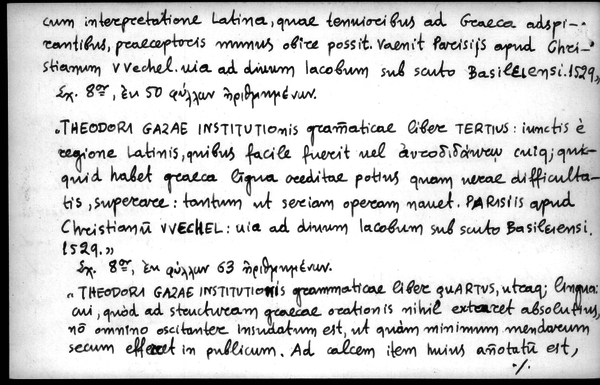 cum interpretatione Latina, quae tenuioribus ad Graeca adspi-
rantibus, praeceptoris munus obire possit. Vaenit Parisijs apud Chri-
stianum VVechel. uia ad diuum Iacobum sub scuto Basileiensi. 1529„
Σχ. 8ον, ἐκ 50 φύλλων ἠριθμημένων.
„THEODORI GAZAE INSTITUTIOnis gram̄aticae liber TERTIUS: iunctis è
regione Latinis, quibus facile fuerit uel ἀυτοδιδάκτῳ cuiq; quic-
quid habet graeca lingua oreditae potius quam uerae difficulta-
tis, superare: tantum ut seriam operam nauet. PARISIIS apud
Christianū VVECHEL: uia ad diuum Iacobum sub scuto Basileiensi.
1529.„
Σχ. 8ον, ἐκ φύλλων 63 ἠριθμημένων.
„THEODORI GAZAE INSTITUTIOnis grammaticae liber QUARTUS, utraq; lingua:
cui, quòd ad structuram graecae orationis nihil extaret absolutius,
nō omnino oscitanter insudatum est, ut quàm minimum mendarum
secum efferret in publicum. Ad calcem item huius añotatū est,
./.